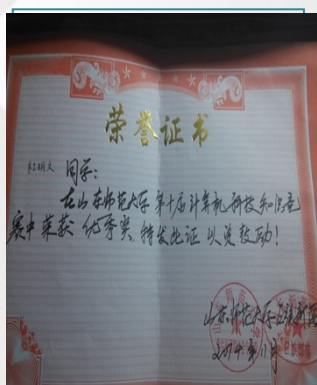 荣誉证书
同学:
在山东师范大学第十届计算机科技知识竞
赛中荣获 优秀奖 特发此证 以资鼓励!
山东师范大学
2014年11月